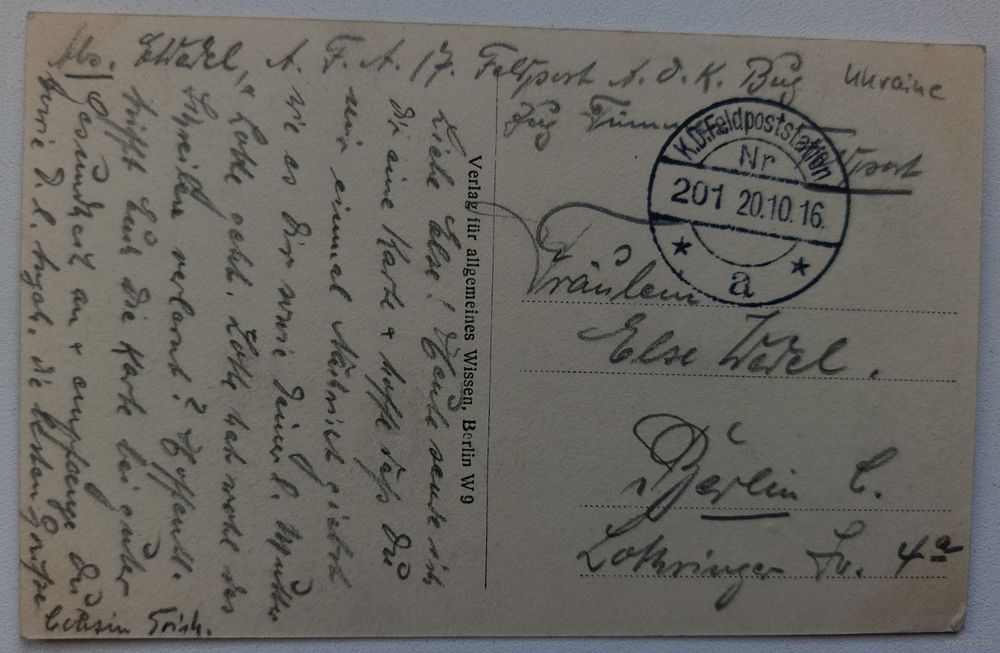 Abs. E. Wedel, A. F. A. 17. Feldpost A. O. K. Bug Ukraine
Zug
Feldpost
K.D.Feldpoststation
Nr
201 20.10.16.
a
Fräulein
Else Wedel.
Berlin C.
Lothringer Str. 4a
Verlag für allgemeines Wissen, Berlin W 9
Liebe Else! Heute sende ich
Dir eine Karte & hoffe daß Du
mir einmal Nachricht giebst
wie es Dir sowie Deiner l. Mutter
& Lotte geht. Lotte hat wohl das
Schreiben verlernt? Hoffentl.
trifft Euch die Karte bei guter
Gesundheit an & empfange Du
sowie D. l. Angeh. die besten Grüße